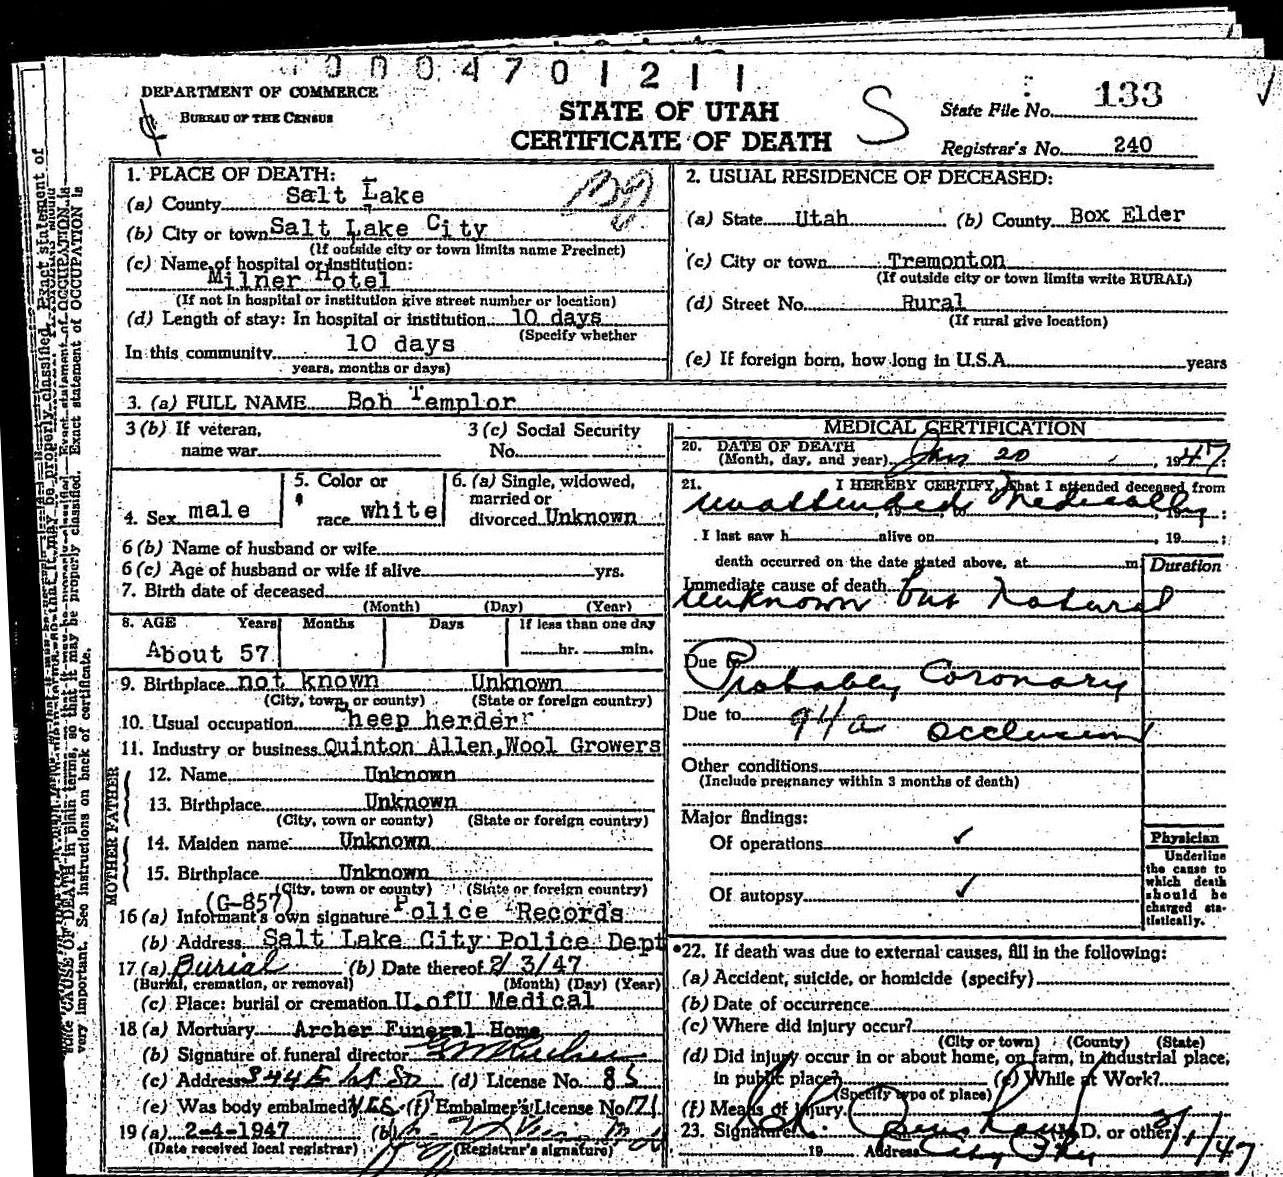 0004701211
DEPARTMENT OF COMMERCE
BUREAU OF THE CENSUS
STATE OF UTAH
CERTIFICATE OF DEATH
S
State File No. 133
Registrar's No. 240
1. PLACE OF DEATH:
(a) County Salt Lake
(b) City or town Salt Lake City
(If outside city or town limits name Precinct)
(c) Name of hospital or institution:
Milner Hotel
(If not in hospital or institution give street number or location)
(d) Length of stay: In hospital or institution 10 days
(Specify whether
In this community 10 days
years, months or days)
2. USUAL RESIDENCE OF DECEASED:
(a) State Utah (b) County Box Elder
(c) City or town Tremonton
(If outside city or town limits write RURAL)
(d) Street No. Rural
(If rural give location)
(e) If foreign born, how long in U.S.A. years
3. (a) FULL NAME Bob Templor
3 (b) If veteran, name war
3 (c) Social Security No.
4. Sex male
5. Color or race white
6. (a) Single, widowed, married or divorced Unknown
6 (b) Name of husband or wife
6 (c) Age of husband or wife if alive yrs.
7. Birth date of deceased
(Month) (Day) (Year)
8. AGE Years Months Days If less than one day
About 57 hr. min.
9. Birthplace not known Unknown
(City, town, or county) (State or foreign country)
10. Usual occupation heep herder
11. Industry or business Quinton Allen, Wool Growers
FATHER
12. Name Unknown
13. Birthplace Unknown
(City, town or county) (State or foreign country)
MOTHER
14. Maiden name Unknown
15. Birthplace Unknown
(City, town or county) (State or foreign country)
(G-857)
16 (a) Informant's own signature Police Records
(b) Address Salt Lake City Police Dept
17 (a) Burial (b) Date thereof 2/3/47
(Burial, cremation, or removal) (Month) (Day) (Year)
(c) Place: burial or cremation U. of U Medical
18 (a) Mortuary Archer Funeral Home
(b) Signature of funeral director
(c) Address (d) License No. 85
(e) Was body embalmed Yes (f) Embalmer's License No 171
19 (a) 2-4-1947 (b)
(Date received local registrar) (Registrar's signature)
MEDICAL CERTIFICATION
20. DATE OF DEATH
(Month, day, and year) Jan 20, 1947
21. I HEREBY CERTIFY, That I attended deceased from
unattended medically
I last saw h alive on , 19 ;
death occurred on the date stated above, at m
Duration
Immediate cause of death
unknown but natural
Due to
Probably Coronary
Due to 94a occlusion
Other conditions
(Include pregnancy within 3 months of death)
Major findings:
Of operations ✓
Of autopsy ✓
Physician
Underline
the cause to
which death
should be
charged sta-
tistically.
22. If death was due to external causes, fill in the following:
(a) Accident, suicide, or homicide (specify)
(b) Date of occurrence
(c) Where did injury occur?
(City or town) (County) (State)
(d) Did injury occur in or about home, on farm, in industrial place,
in public place? (e) While at Work?
(Specify type of place)
(f) Means of injury
23. Signature M.D. or other 2/1/47
19 Address City
very important. See instructions on back of certificate.
CAUSE OF DEATH in plain terms, so that it may be properly classified. Exact statement of OCCUPATION is